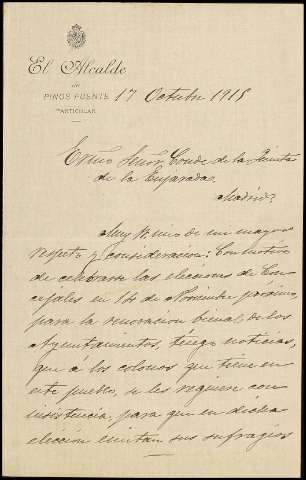 El Alcalde
de
PINOS PUENTE
PARTICULAR
17 Octubre 1915
Exmo Señor Conde de la Quinta
de la Enjarada.
Madrid
Muy Sr. mio de mi mayor
respeto y consideracion: Con motivo
de celebrarse las elecciones de Con-
cejales en 14 de Noviembre próximo,
para la renovacion bienal de los
Ayuntamientos, tengo noticias,
que á los colonos que tiene en
este pueblo, se les requiere con
insistencia, para que en dicha
eleccion emitan sus sufragios